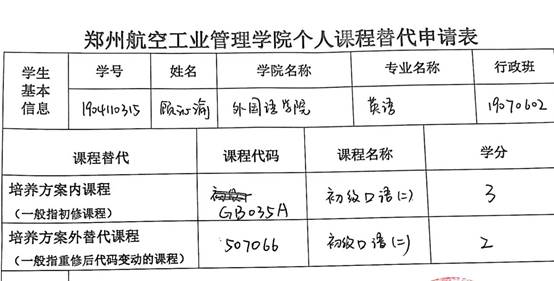 郑州航空工业管理学院个人课程替代申请表
学生基本信息 学号 姓名 学院名称 专业名称 行政班
1904110315 顾 外国语学院 英语 19070602
课程替代 课程代码 课程名称 学分
培养方案内课程
(一般指初修课程) GB035A 初级口语(二) 3
培养方案外替代课程
(一般指重修后代码变动的课程) 507066 初级口语(二) 2